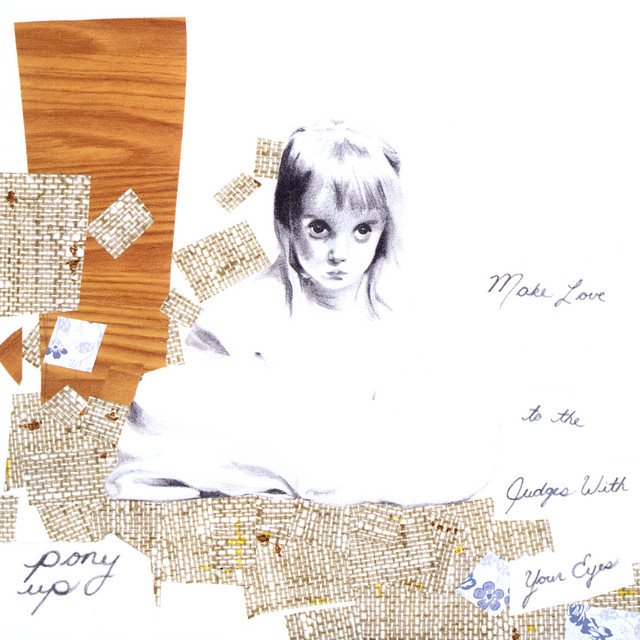 Make Love
to the
Judges With
Your Eyes
pony
up